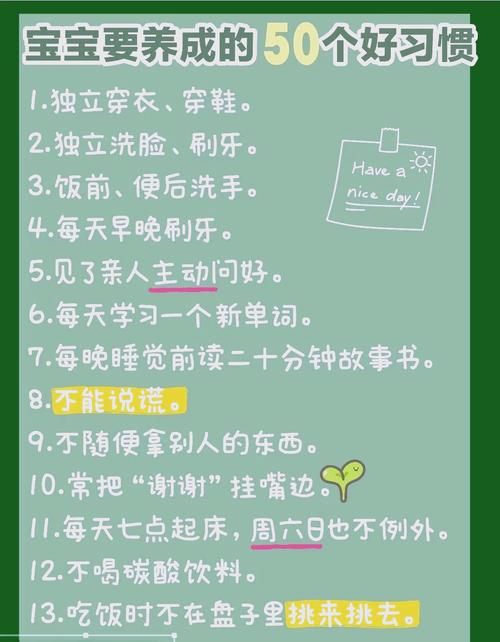 宝宝要养成的50个好习惯
1.独立穿衣、穿鞋。
2.独立洗脸、刷牙。
3.饭前、便后洗手。
Have a
nice day!
4.每天早晚刷牙。
5.见了亲人主动问好。
6.每天学习一个新单词。
7.每晚睡觉前读二十分钟故事书。
8.不能说谎。
9.不随便拿别人的东西。
10.常把“谢谢”挂嘴边。
11.每天七点起床，周六日也不例外。
12.不喝碳酸饮料。
13.吃饭时不在盘子里挑来挑去。